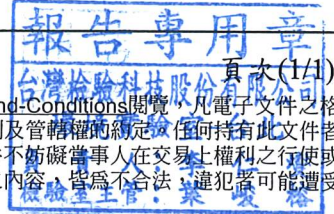 報告專用章
頁次(1/1)
台灣檢驗科技股份有限公司
nd-Conditions閱覽，凡電子文件之格
及管轄權的約定。任何持有此文件者
不妨礙當事人在交易上權利之行使或
內容，皆為不合法，違犯者可能遭受
檢驗室主管：